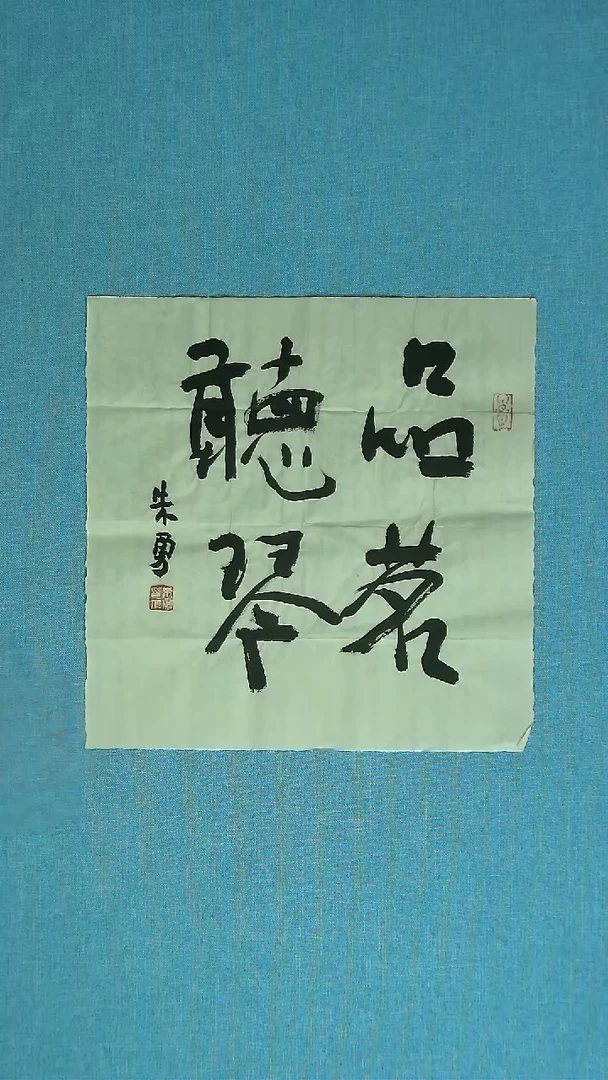 品茗
聽琴
朱勇